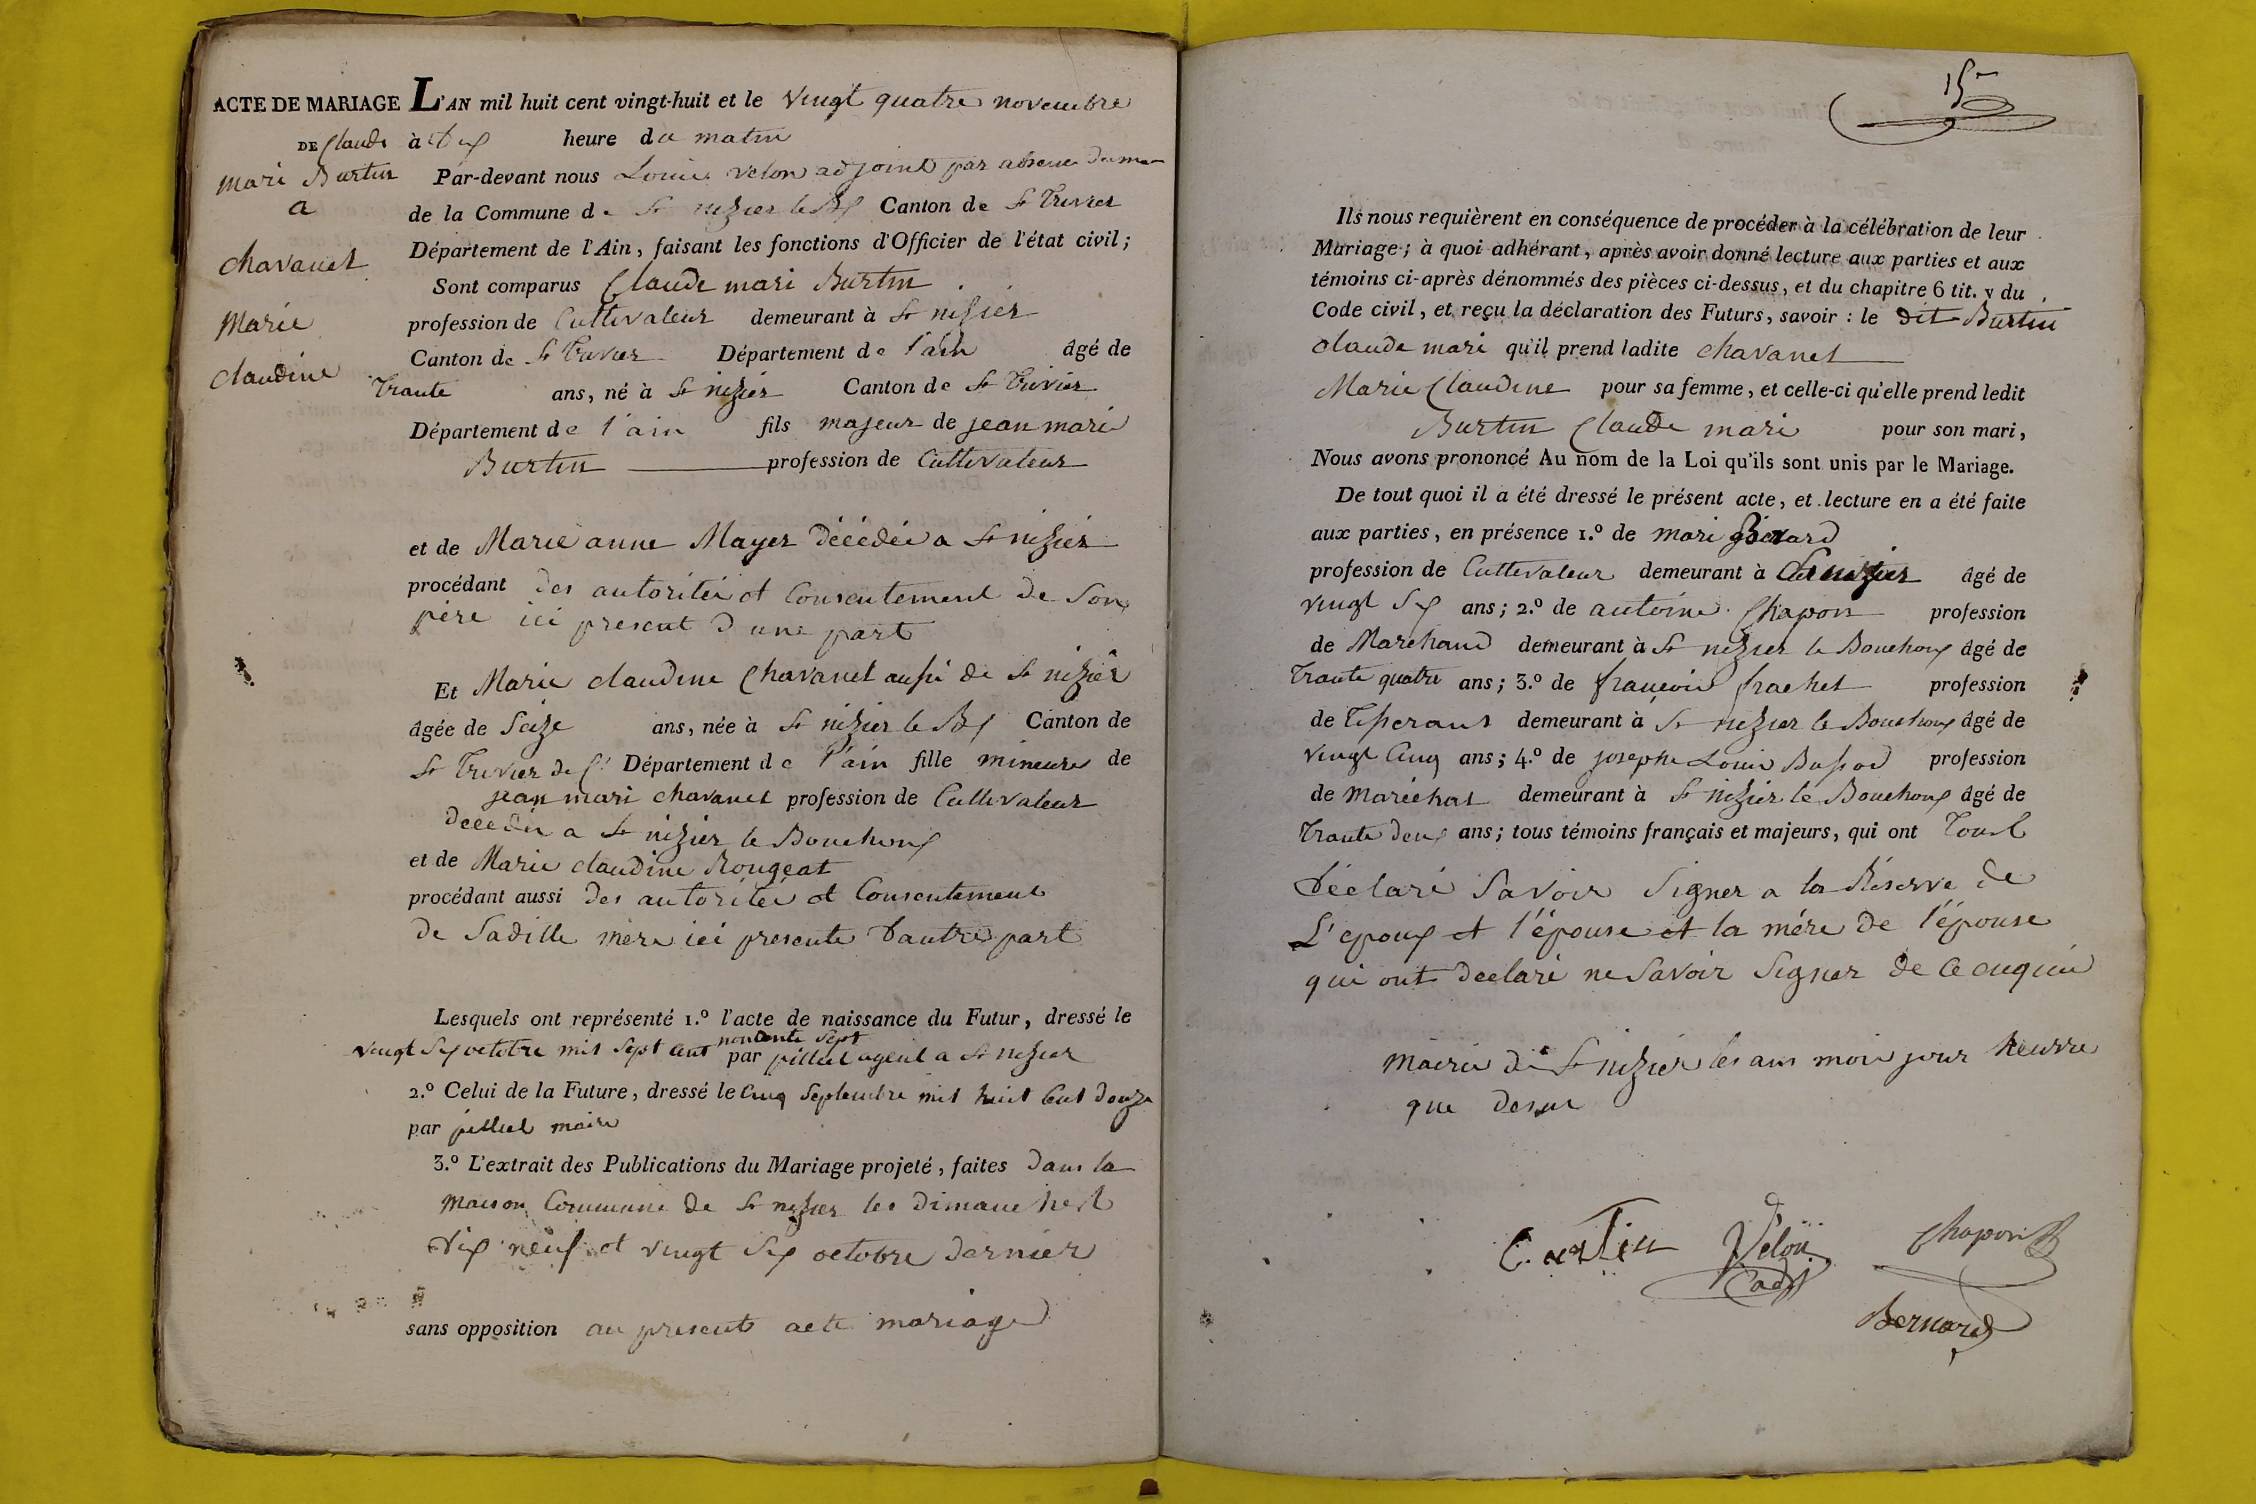 ACTE DE MARIAGE L'AN mil huit cent vingt-huit et le vingt quatre novembre
DE Claude à dix heure du matin
mari Burtin Par-devant nous Louis velon adjoint par absence du
a de la Commune de St nizier le Bx Canton de St Trivier
chavanet Département de l'Ain, faisant les fonctions d'Officier de l'état civil;
Sont comparus Claude mari Burtin
Marie profession de Cultivateur demeurant à St nizier
Canton de St Trivier Département de l'ain âgé de
claudine Trante ans, né à St nizier Canton de St Trivier
Département de l'ain fils majeur de jean mari
Burtin profession de Cultivateur
et de Marie anne Mayer décédée a St nizier
procédant des autorité et Consentement de Son
père ici present d'une part
Et Marie claudine Chavanet aussi de St nizier
âgée de Seize ans, née à St nizier le Bx Canton de
St Trivier de Ct Département de l'ain fille mineure de
jean mari chavanet profession de Cultivateur
décédé a St nizier le Bouchoux
et de Marie claudine Rongeat
procédant aussi des autorité et Consentement
de Saditte mère ici presente d'autre part
Lesquels ont représenté 1.º l'acte de naissance du Futur, dressé le
nonante Sept
vingt Six octobre mil Sept Cent par pilliat agent a St nizier
2.º Celui de la Future, dressé le Cinq Septembre mil huit Cent douze
par pilliat maire
3.º L'extrait des Publications du Mariage projeté, faites dans la
maison Commune de St nizier les dimanche
dix neuf et vingt Six octobre dernier
sans opposition au present acte mariage
15
Ils nous requièrent en conséquence de procéder à la célébration de leur
Mariage; à quoi adhérant, après avoir donné lecture aux parties et aux
témoins ci-après dénommés des pièces ci-dessus, et du chapitre 6 tit. v du
Code civil, et reçu la déclaration des Futurs, savoir : le dit Burtin
claude mari qu'il prend ladite chavanet
Marie Claudine pour sa femme, et celle-ci qu'elle prend ledit
Burtin Claude mari pour son mari,
Nous avons prononcé Au nom de la Loi qu'ils sont unis par le Mariage.
De tout quoi il a été dressé le présent acte, et lecture en a été faite
aux parties, en présence 1.º de mari
profession de Cultivateur demeurant à âgé de
vingt Six ans; 2.º de antoine Chapon profession
de Marchand demeurant à St nizier le Bouchoux âgé de
Trante quatre ans; 3.º de françois frachet profession
de Tisserant demeurant à St nizier le Bouchoux âgé de
vingt Cinq ans; 4.º de josephe Louis profession
de maréchat demeurant à St nizier le Bouchoux âgé de
Trante deux ans; tous témoins français et majeurs, qui ont Tout
déclaré Savoir Signer a la Réserve de
L'epoux et l'épouse et la mére de l'épouse
qui ont declaré ne Savoir Signer de Ce enquis
mairie de St nizier les ans mois jour heurre
que desus
Velon Chapon
adj
Bernard